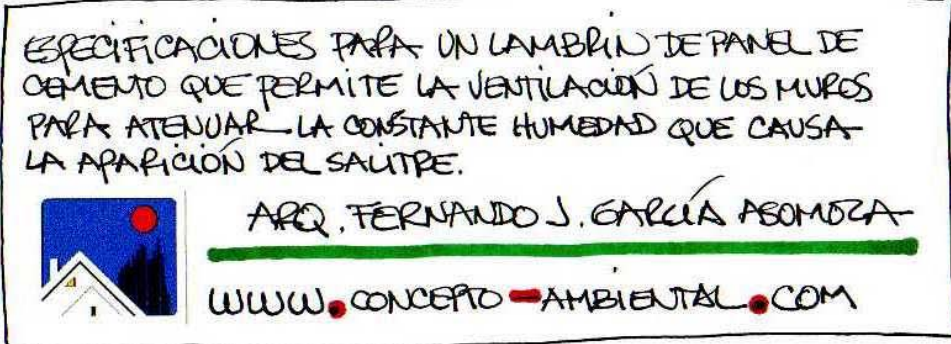 ESPECIFICACIONES PARA UN LAMBRIN DE PANEL DE
CEMENTO QUE PERMITE LA VENTILACIÓN DE LOS MUROS
PARA ATENUAR LA CONSTANTE HUMEDAD QUE CAUSA
LA APARICIÓN DEL SALITRE.
ARQ. FERNANDO J. GARCÍA ASOMOZA
WWW.CONCEPTO-AMBIENTAL.COM